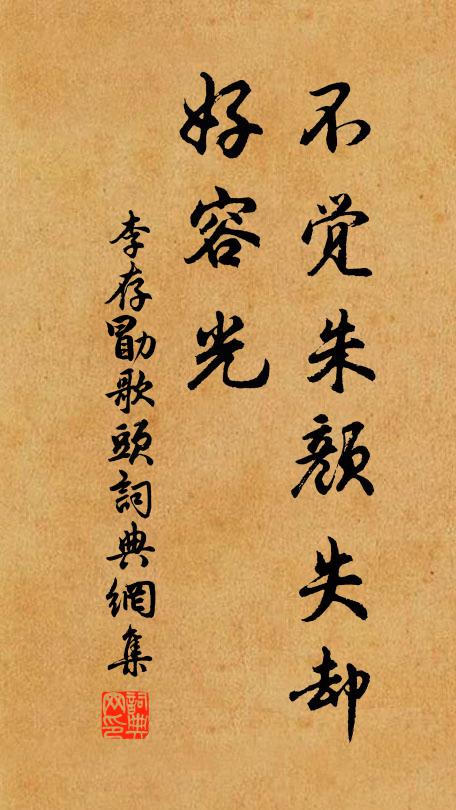 不觉朱颜失却
好容光
李存勖歌頭詞典網集
詞典网印